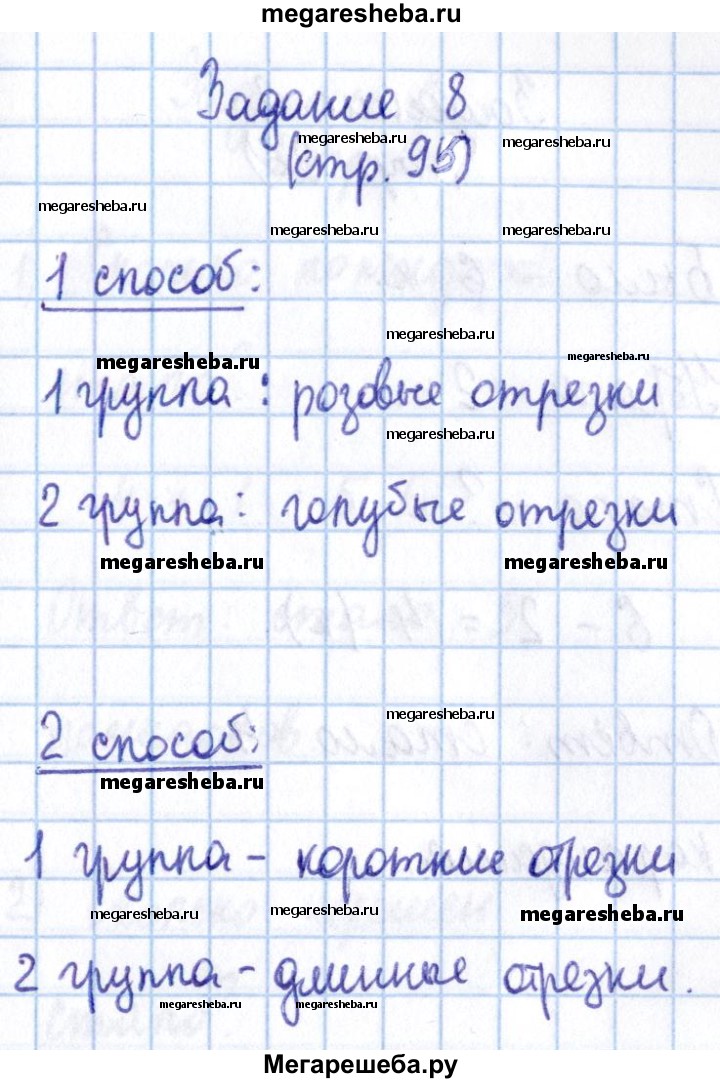 megaresheba.ru
Задание 8
megaresheba.ru
megaresheba.ru
(стр. 95)
megaresheba.ru
megaresheba.ru
megaresheba.ru
1 способ:
megaresheba.ru
megaresheba.ru
megaresheba.ru
1 группа: розовые отрезки
megaresheba.ru
2 группа: голубые отрезки
megaresheba.ru
megaresheba.ru
megaresheba.ru
2 способ:
megaresheba.ru
1 группа - короткие отрезки
megaresheba.ru
megaresheba.ru
megaresheba.ru
2 группа - длинные отрезки.
megaresheba.ru
megaresheba.ru
Мегарешеба.ру